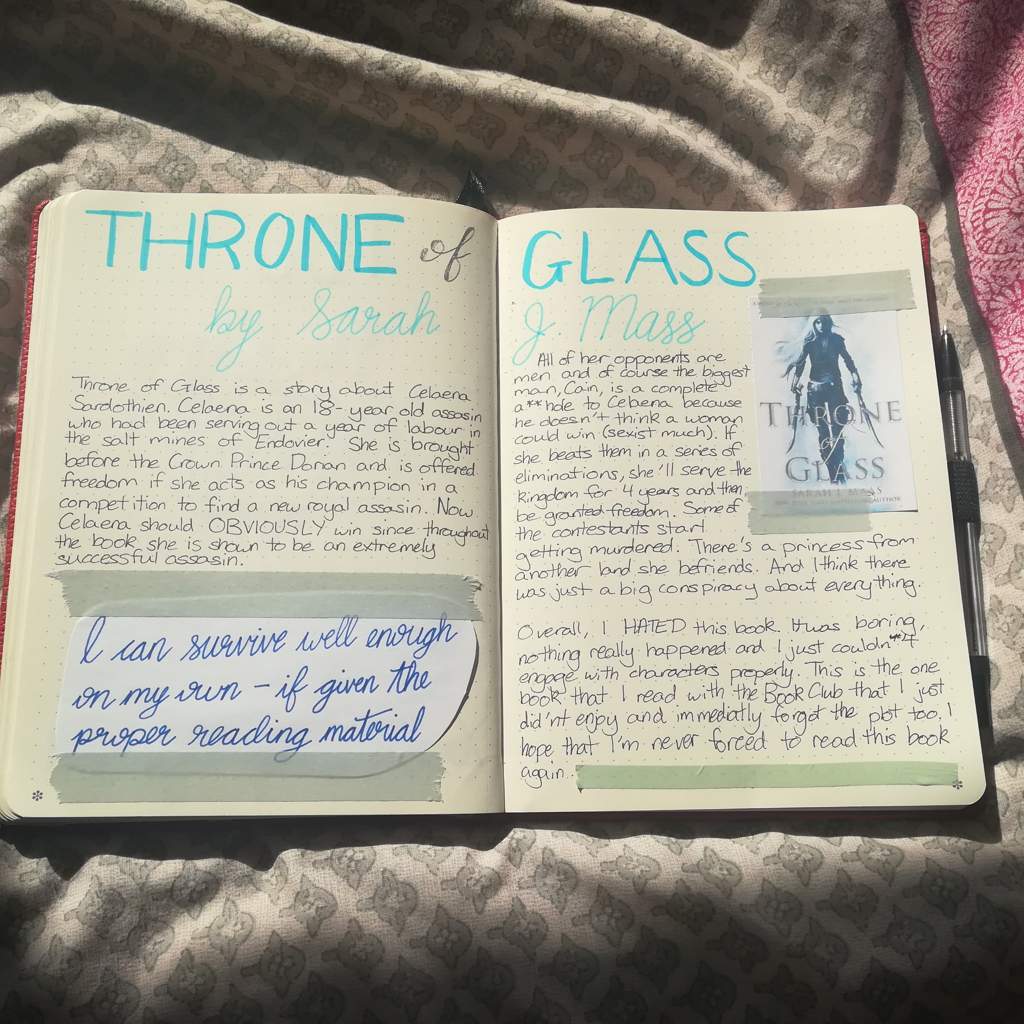 THRONE of
by Sarah
Throne of Glass is a story about Celaena
Sardothien. Celaena is an 18-year old assasin
who had been serving out a year of labour in
the salt mines of Endovier. She is brought
before the Crown Prince Dorian and is offered
freedom if she acts as his champion in a
competition to find a new royal assasin. Now
Celaena should OBVIOUSLY win since throughout
the book she is shown to be an extremely
successful assasin.
I can survive well enough
on my own – if given the
proper reading material
GLASS
J. Mass
All of her opponents are
men and of course the biggest
man, Cain, is a complete
a**hole to Celaena because
he doesn't think a woman
could win (sexist much). If
she beats them in a series of
eliminations, she'll serve the
kingdom for 4 years and then
be granted freedom. Some of
the contestants start
getting murdered. There's a princess from
another land she befriends. And I think there
was just a big conspiracy about everything.
Overall, I HATED this book. It was boring,
nothing really happened and I just couldn't
engage with characters properly. This is the one
book that I read with the Book Club that I just
did'nt enjoy and immediatly forgot the plot too. I
hope that I'm never forced to read this book
again.
THRONE
of
GLASS
SARAH J. MAAS